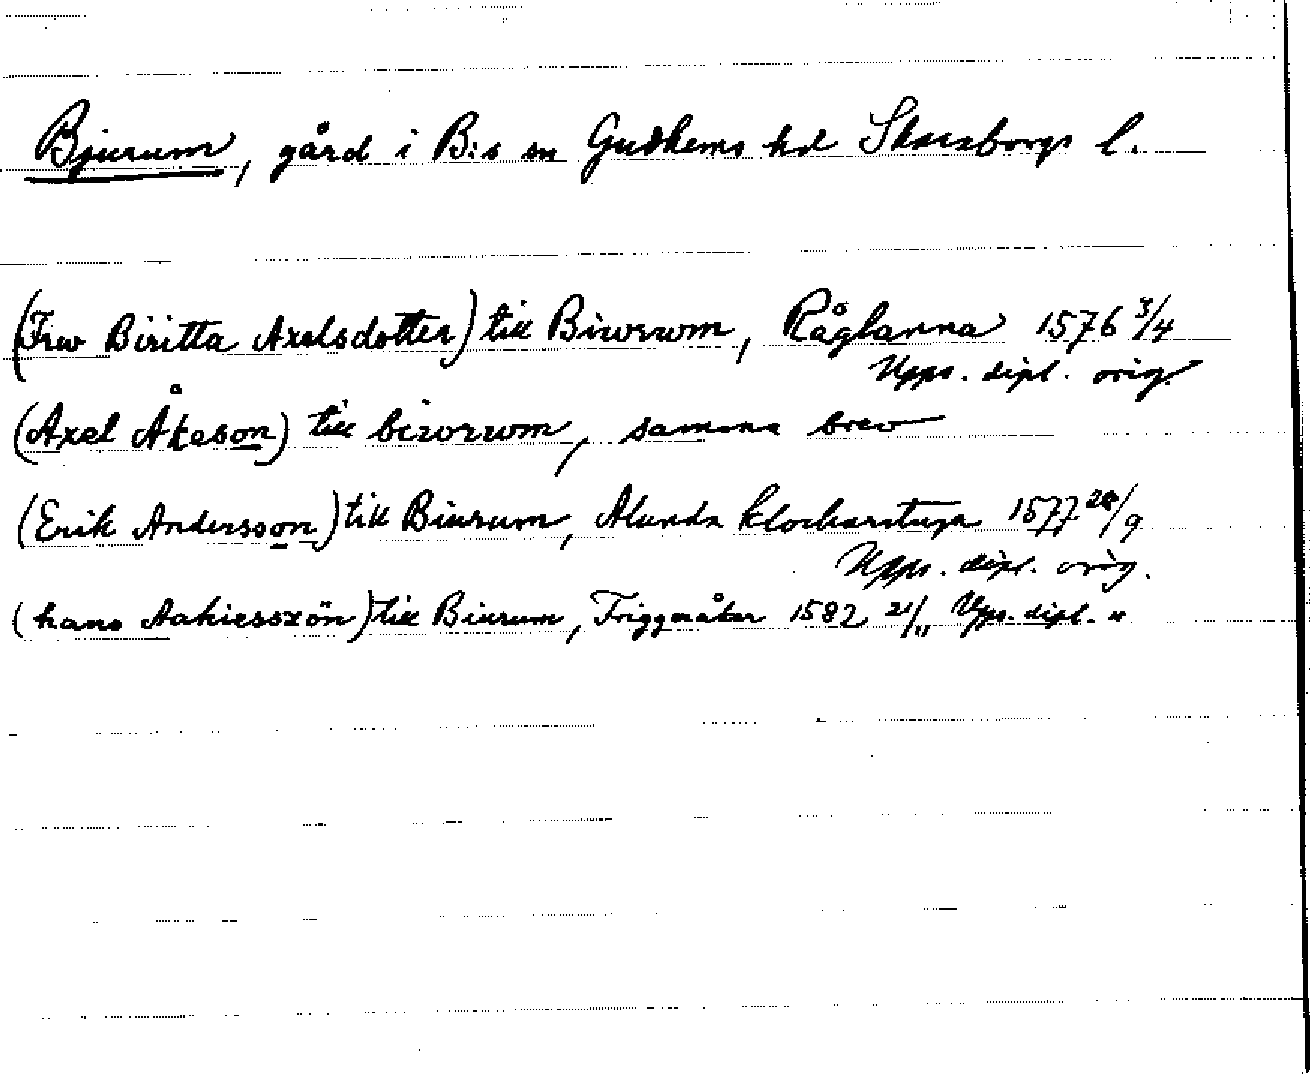 Bjurum, gård i B:s sn Gudhems hd Skaraborgs l.
(Frw Biritta Axelsdotter) till Biwrwm, Råglanna 1576 3/4
Upps. dipl. orig.
(Axel Åkeson) till biworwm, samma brev
(Erik Andersson) till Biurum, Alunda klockarstuga 1577 28/9
Upps. dipl. orig.
(hans Aakiesszön) till Biurum, Friggeråker 1582 21/11 Upps. dipl. "